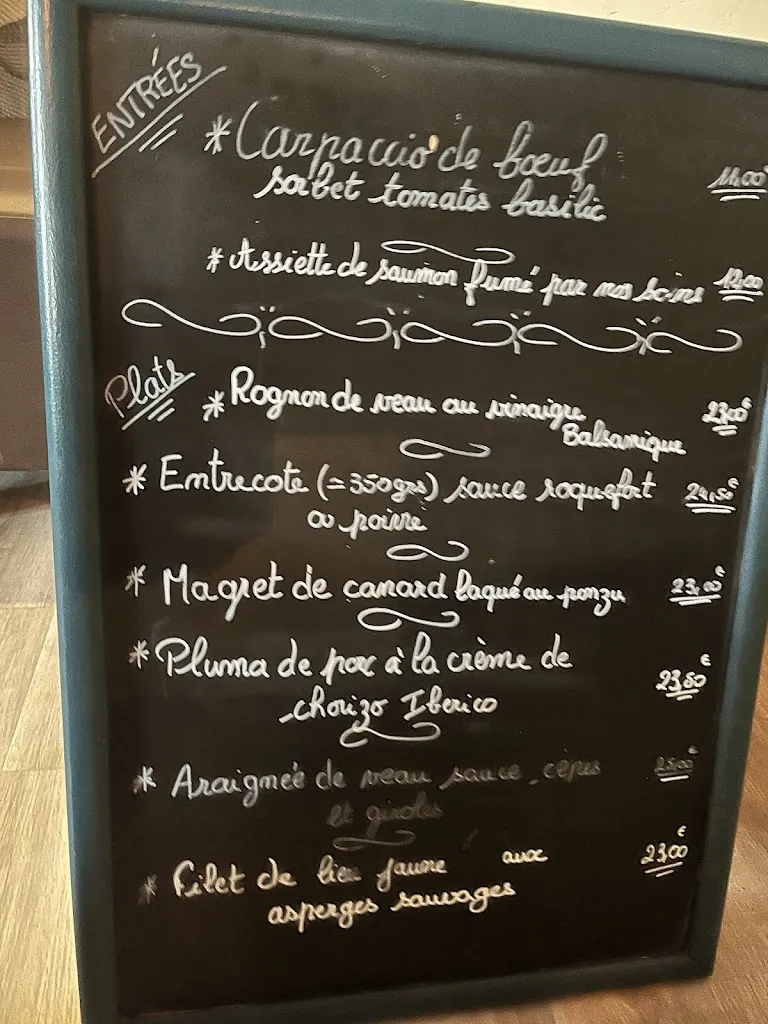 ENTRÉES
*Carpaccio de bœuf
sorbet tomates basilic
* Assiette de saumon fumé par nos soins 12,00
Plats
* Rognon de veau au vinaigre 23,00€
Balsamique
* Entrecote (=350grs) sauce roquefort 24,50€
ou poivre
* Magret de canard laqué au ponzu 23,00€
* Pluma de porc à la crème de
chorizo Iberico 23,50€
* Araignée de veau sauce cèpes
et giroles
* Filet de lieu jaune avec 23,00€
asperges sauvages